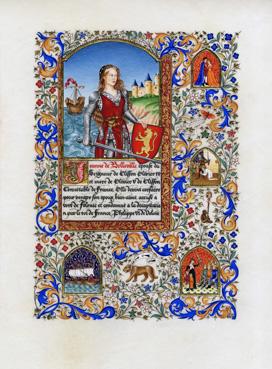 Jeanne de Belleville épouse du
Seigneur de Clisson Olivier IV
et mère de Olivier V de Clisson
Connétable de France. Elle devint corsaire
pour venger son époux bien-aimé accusé à
tort de félonie et condamné à la décapitation
par le roi de France, Philippe VI de Valois